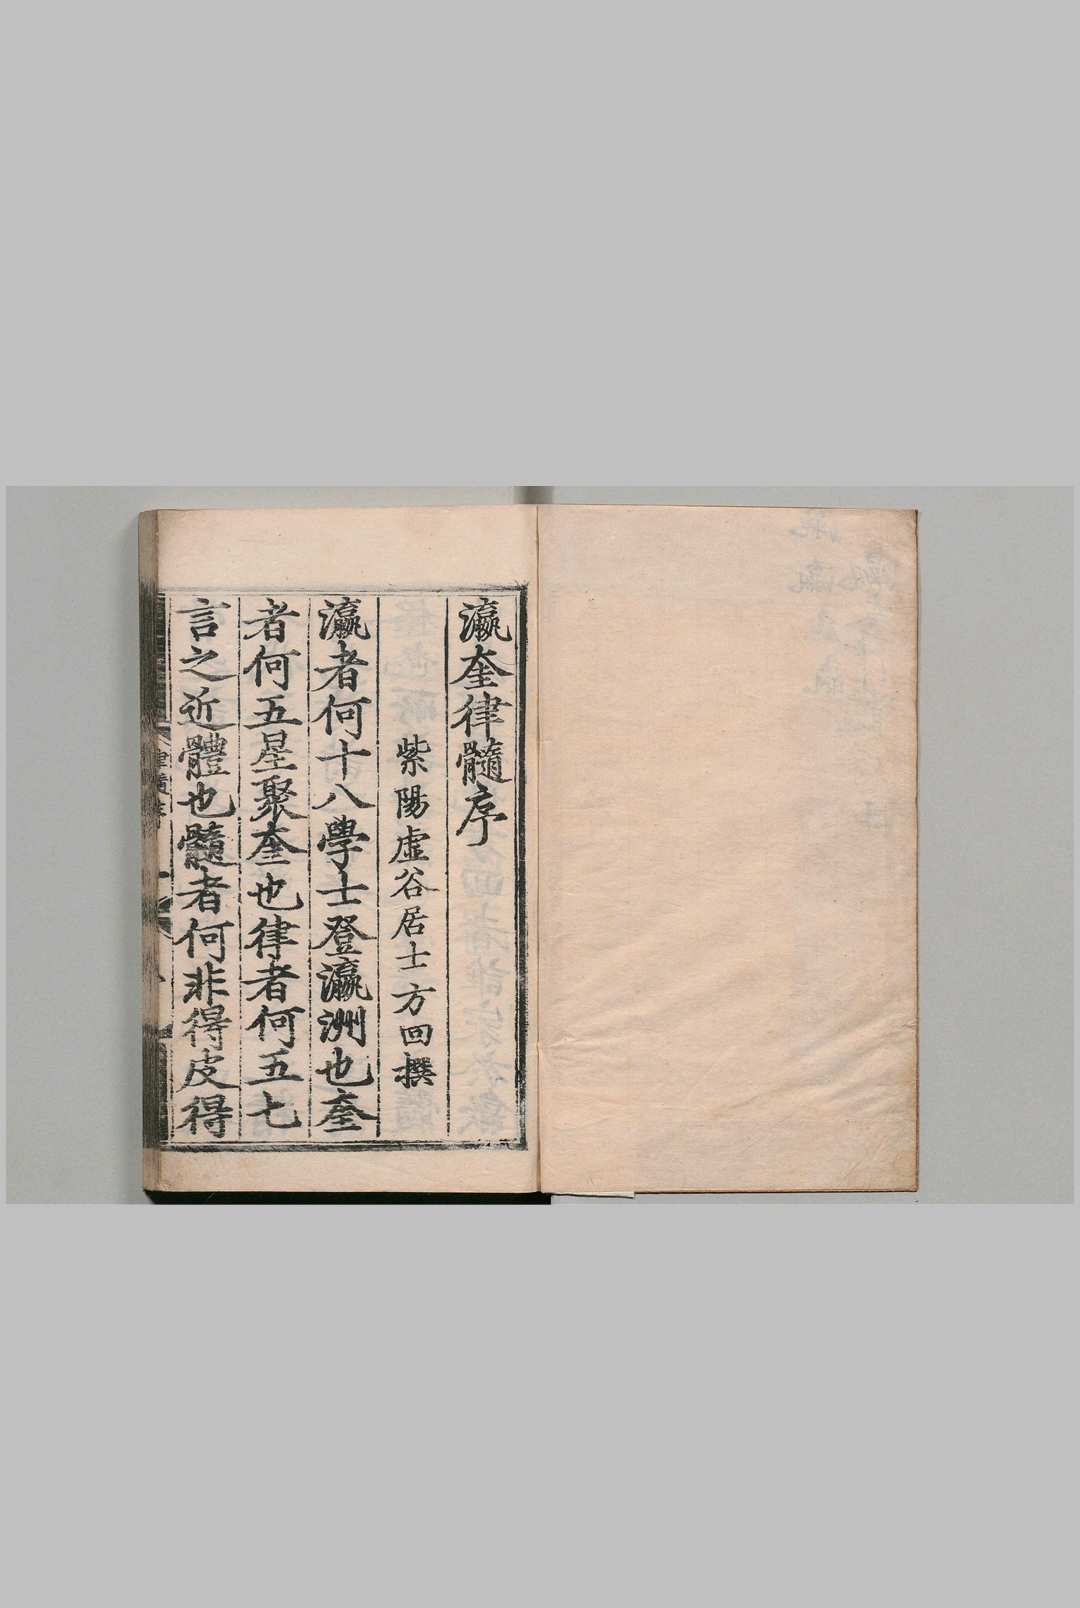 瀛奎律髓序
紫陽虛谷居士方回撰
瀛者何十八學士登瀛洲也奎
者何五星聚奎也律者何五七
言之近體也髓者何非得皮得